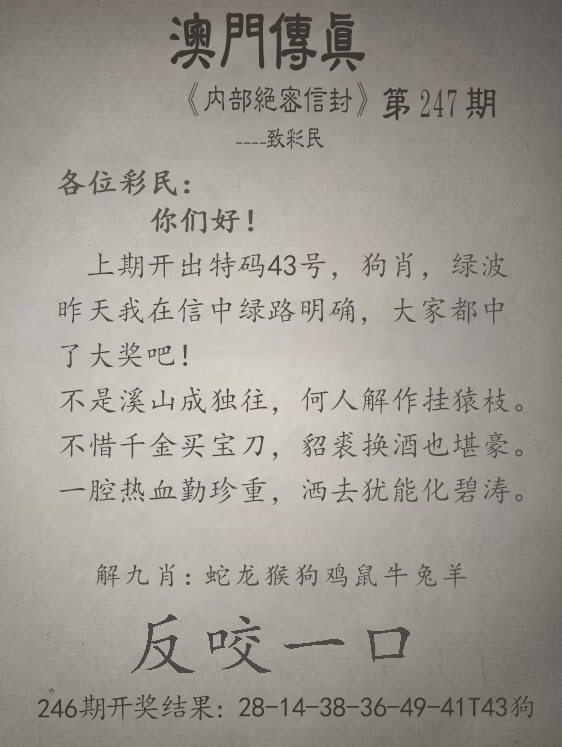 澳門傳真
《内部絕密信封》第247期
----致彩民
各位彩民：
你们好！
上期开出特码43号，狗肖，绿波
昨天我在信中绿路明确，大家都中
了大奖吧！
不是溪山成独往，何人解作挂猿枝。
不惜千金买宝刀，貂裘换酒也堪豪。
一腔热血勤珍重，洒去犹能化碧涛。
解九肖：蛇龙猴狗鸡鼠牛兔羊
反咬一口
246期开奖结果：28-14-38-36-49-41T43狗